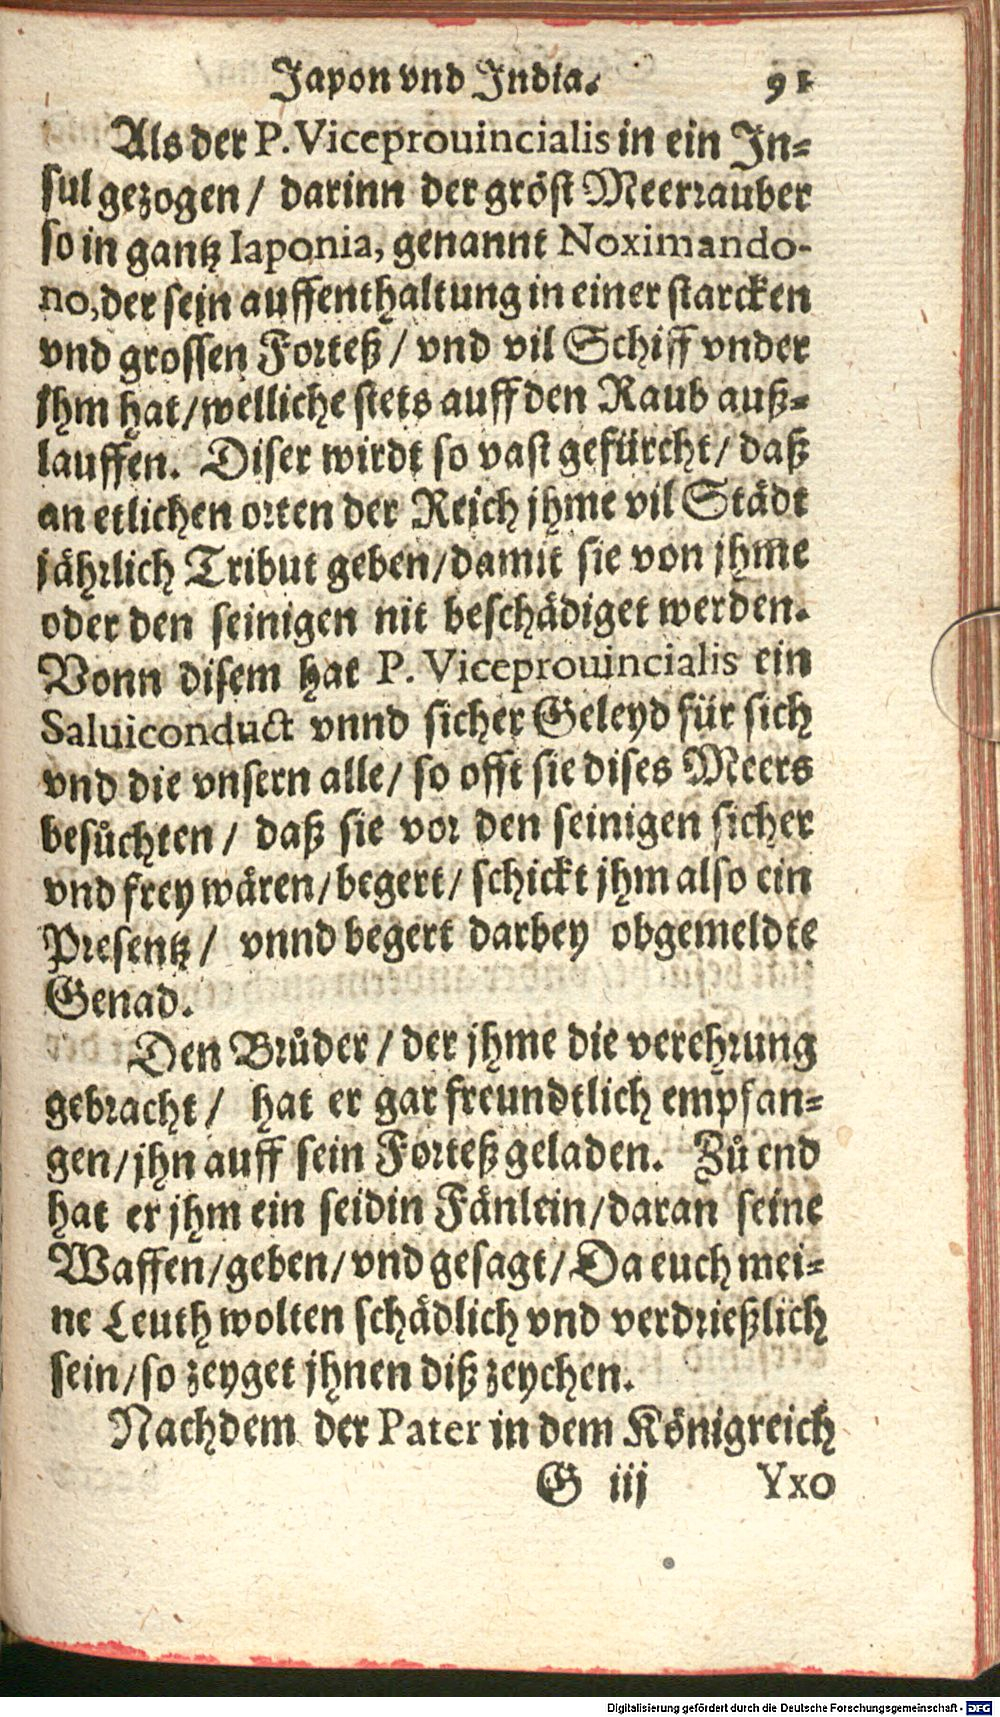 Japon vnd India. 91
Als der P. Viceprouincialis in ein In-
sul gezogen / darinn der gröst Meerrauber
so in gantz Iaponia, genannt Noximando-
no, der sein auffenthaltung in einer starcken
vnd grossen Forteß / vnd vil Schiff vnder
jhm hat / welliche stets auff den Raub auß-
lauffen. Diser wirdt so vast gefürcht / daß
an etlichen orten der Reich jhme vil Städt
jährlich Tribut geben / damit sie von jhme
oder den seinigen nit beschädiget werden.
Vonn disem hat P. Viceprouincialis ein
Saluiconduct vnnd sicher Geleyd für sich
vnd die vnsern alle / so offt sie dises Meers
besůchten / daß sie vor den seinigen sicher
vnd frey wären / begert / schickt jhm also ein
Presentz / vnnd begert darbey obgemeldte
Genad.
Den Brůder / der jhme die verehrung
gebracht / hat er gar freundtlich empfan-
gen / jhn auff sein Forteß geladen. Zů end
hat er jhm ein seidin Fänlein / daran seine
Waffen / geben / vnd gesagt / Da euch mei-
ne Leuth wolten schädlich vnd verdrießlich
sein / so zeyget jhnen diß zeychen.
Nachdem der Pater in dem Königreich
G iij Yxo
Digitalisierung gefördert durch die Deutsche Forschungsgemeinschaft - DFG